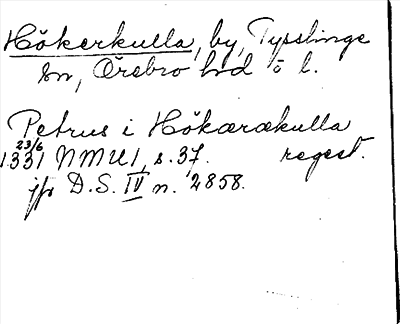 Hökerkulla, by, Tysslinge
sn, Örebro hd o l.
Petrus i Hökarakulla
23/6
1331 NMU1, s. 37. regest.
jfr D.S. IV n. 2858.